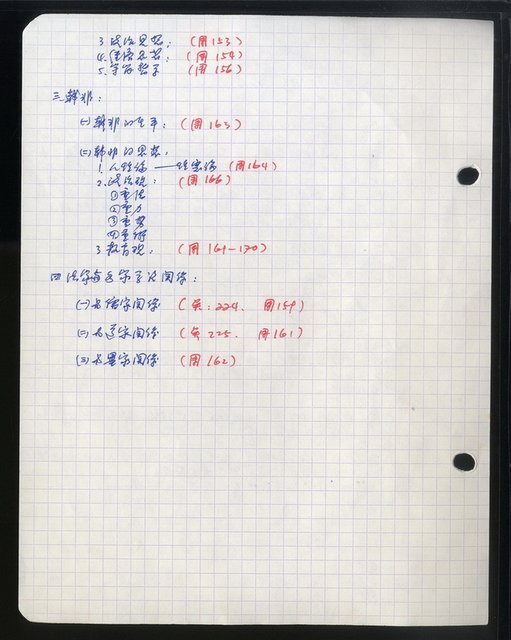 3. 政治思想：（周153）
4. 經濟思想：（周154）
5. 宇宙哲學（周156）
三、韓非：
(一) 韓非的生平：（周163）
(二) 韓非的思想：
1. 人性論——性惡論（周164）
2. 政治觀：（周166）
①重法
②重力
③重勢
④重術
3. 教育觀：（周169–170）
四、法家與各家之關係：
(一) 與儒家關係（吳：224、周159）
(二) 與道家關係（吳225、周161）
(三) 與墨家關係（周162）